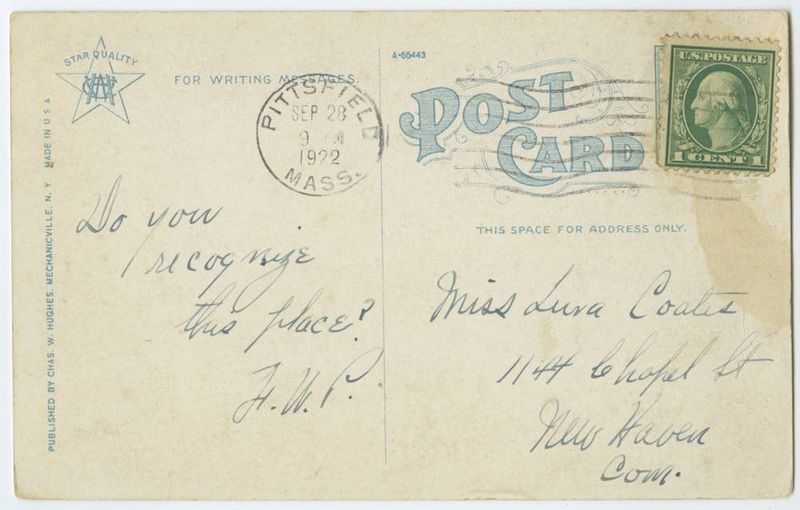 STAR QUALITY
FOR WRITING MESSAGES.
PITTSFIELD
SEP 28
9 M
1922
MASS.
A-55443
POST
CARD
U.S. POSTAGE
1 CENT 1
THIS SPACE FOR ADDRESS ONLY.
PUBLISHED BY CHAS. W. HUGHES, MECHANICVILLE, N. Y. MADE IN U S A
Do you
recognize
this place?
F. W. P.
Miss Luva Coates
1144 Chapel St
New Haven
Conn.